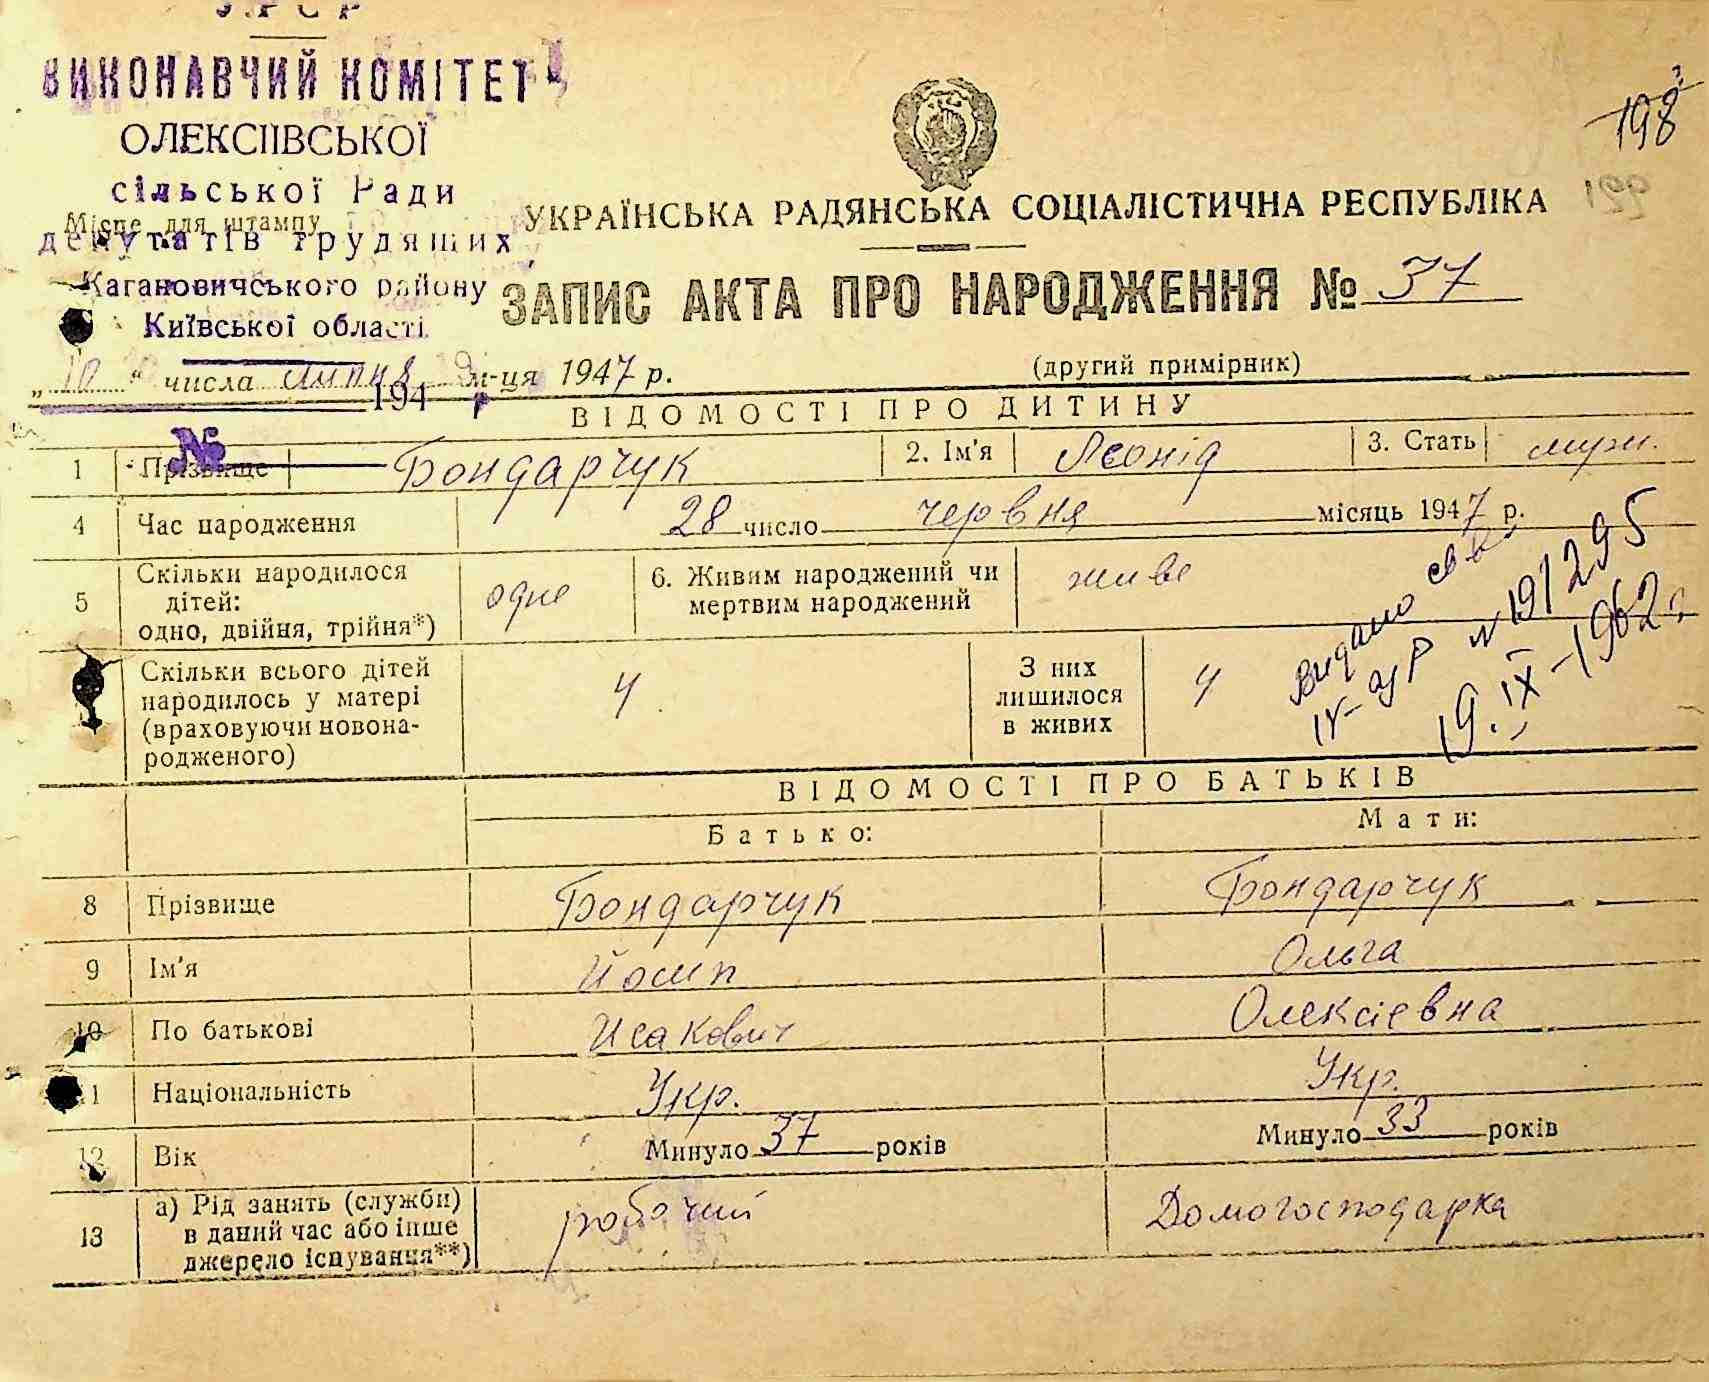 УРСР
ВИКОНАВЧИЙ КОМІТЕТ
ОЛЕКСІЇВСЬКОЇ
сільської Ради
Місце для штампу
депутатів трудящих
Кагановичського району
Київської області
198
УКРАЇНСЬКА РАДЯНСЬКА СОЦІАЛІСТИЧНА РЕСПУБЛІКА
ЗАПИС АКТА ПРО НАРОДЖЕННЯ № 37
(другий примірник)
„10“ числа липня м-ця 1947 р.
194 р
№
ВІДОМОСТІ ПРО ДИТИНУ
1 Прізвище Бондарчук 2. Ім'я Леонід 3. Стать муж.
4 Час народження 28 число червня місяць 1947 р.
5 Скільки народилося дітей: одно, двійня, трійня*) одне 6. Живим народжений чи мертвим народжений живе
Скільки всього дітей народилось у матері (враховуючи новонародженого) 4 З них лишилося в живих 4
Видано св во
ІУ-БР № 191295
19.IX-1962 р
ВІДОМОСТІ ПРО БАТЬКІВ
Батько: Мати:
8 Прізвище Бондарчук Бондарчук
9 Ім'я Йосип Ольга
10 По батькові Исакович Олексієвна
11 Національність Укр. Укр.
12 Вік Минуло 37 років Минуло 33 років
13 а) Рід занять (служби) в даний час або інше джерело існування**) робочий Домогосподарка